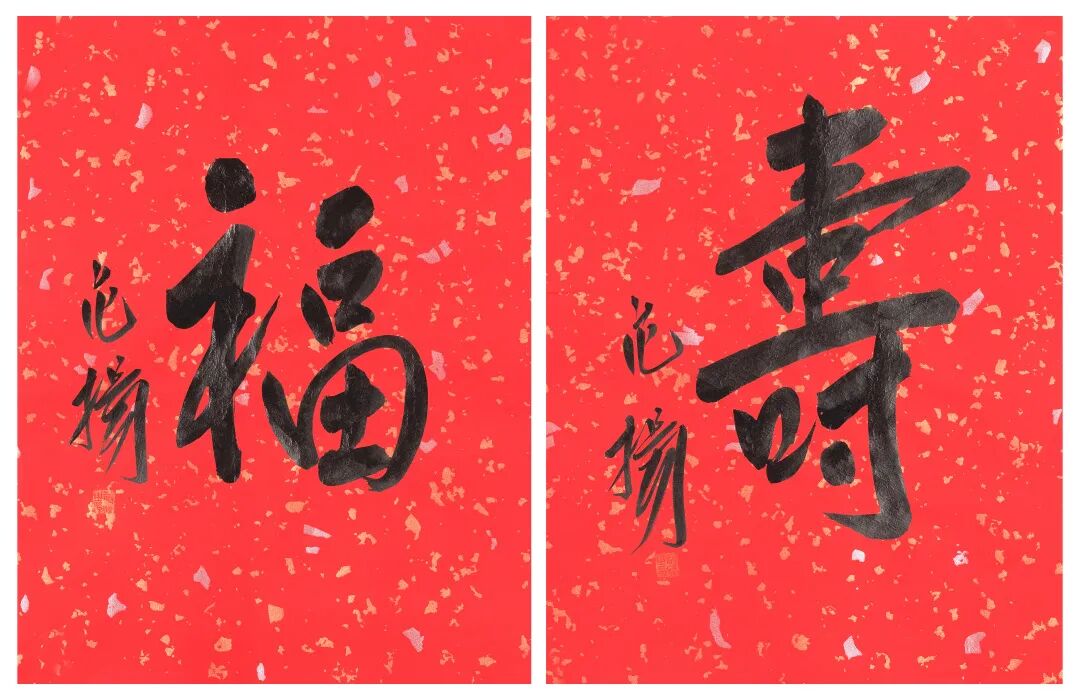 福
范揚
壽
范揚